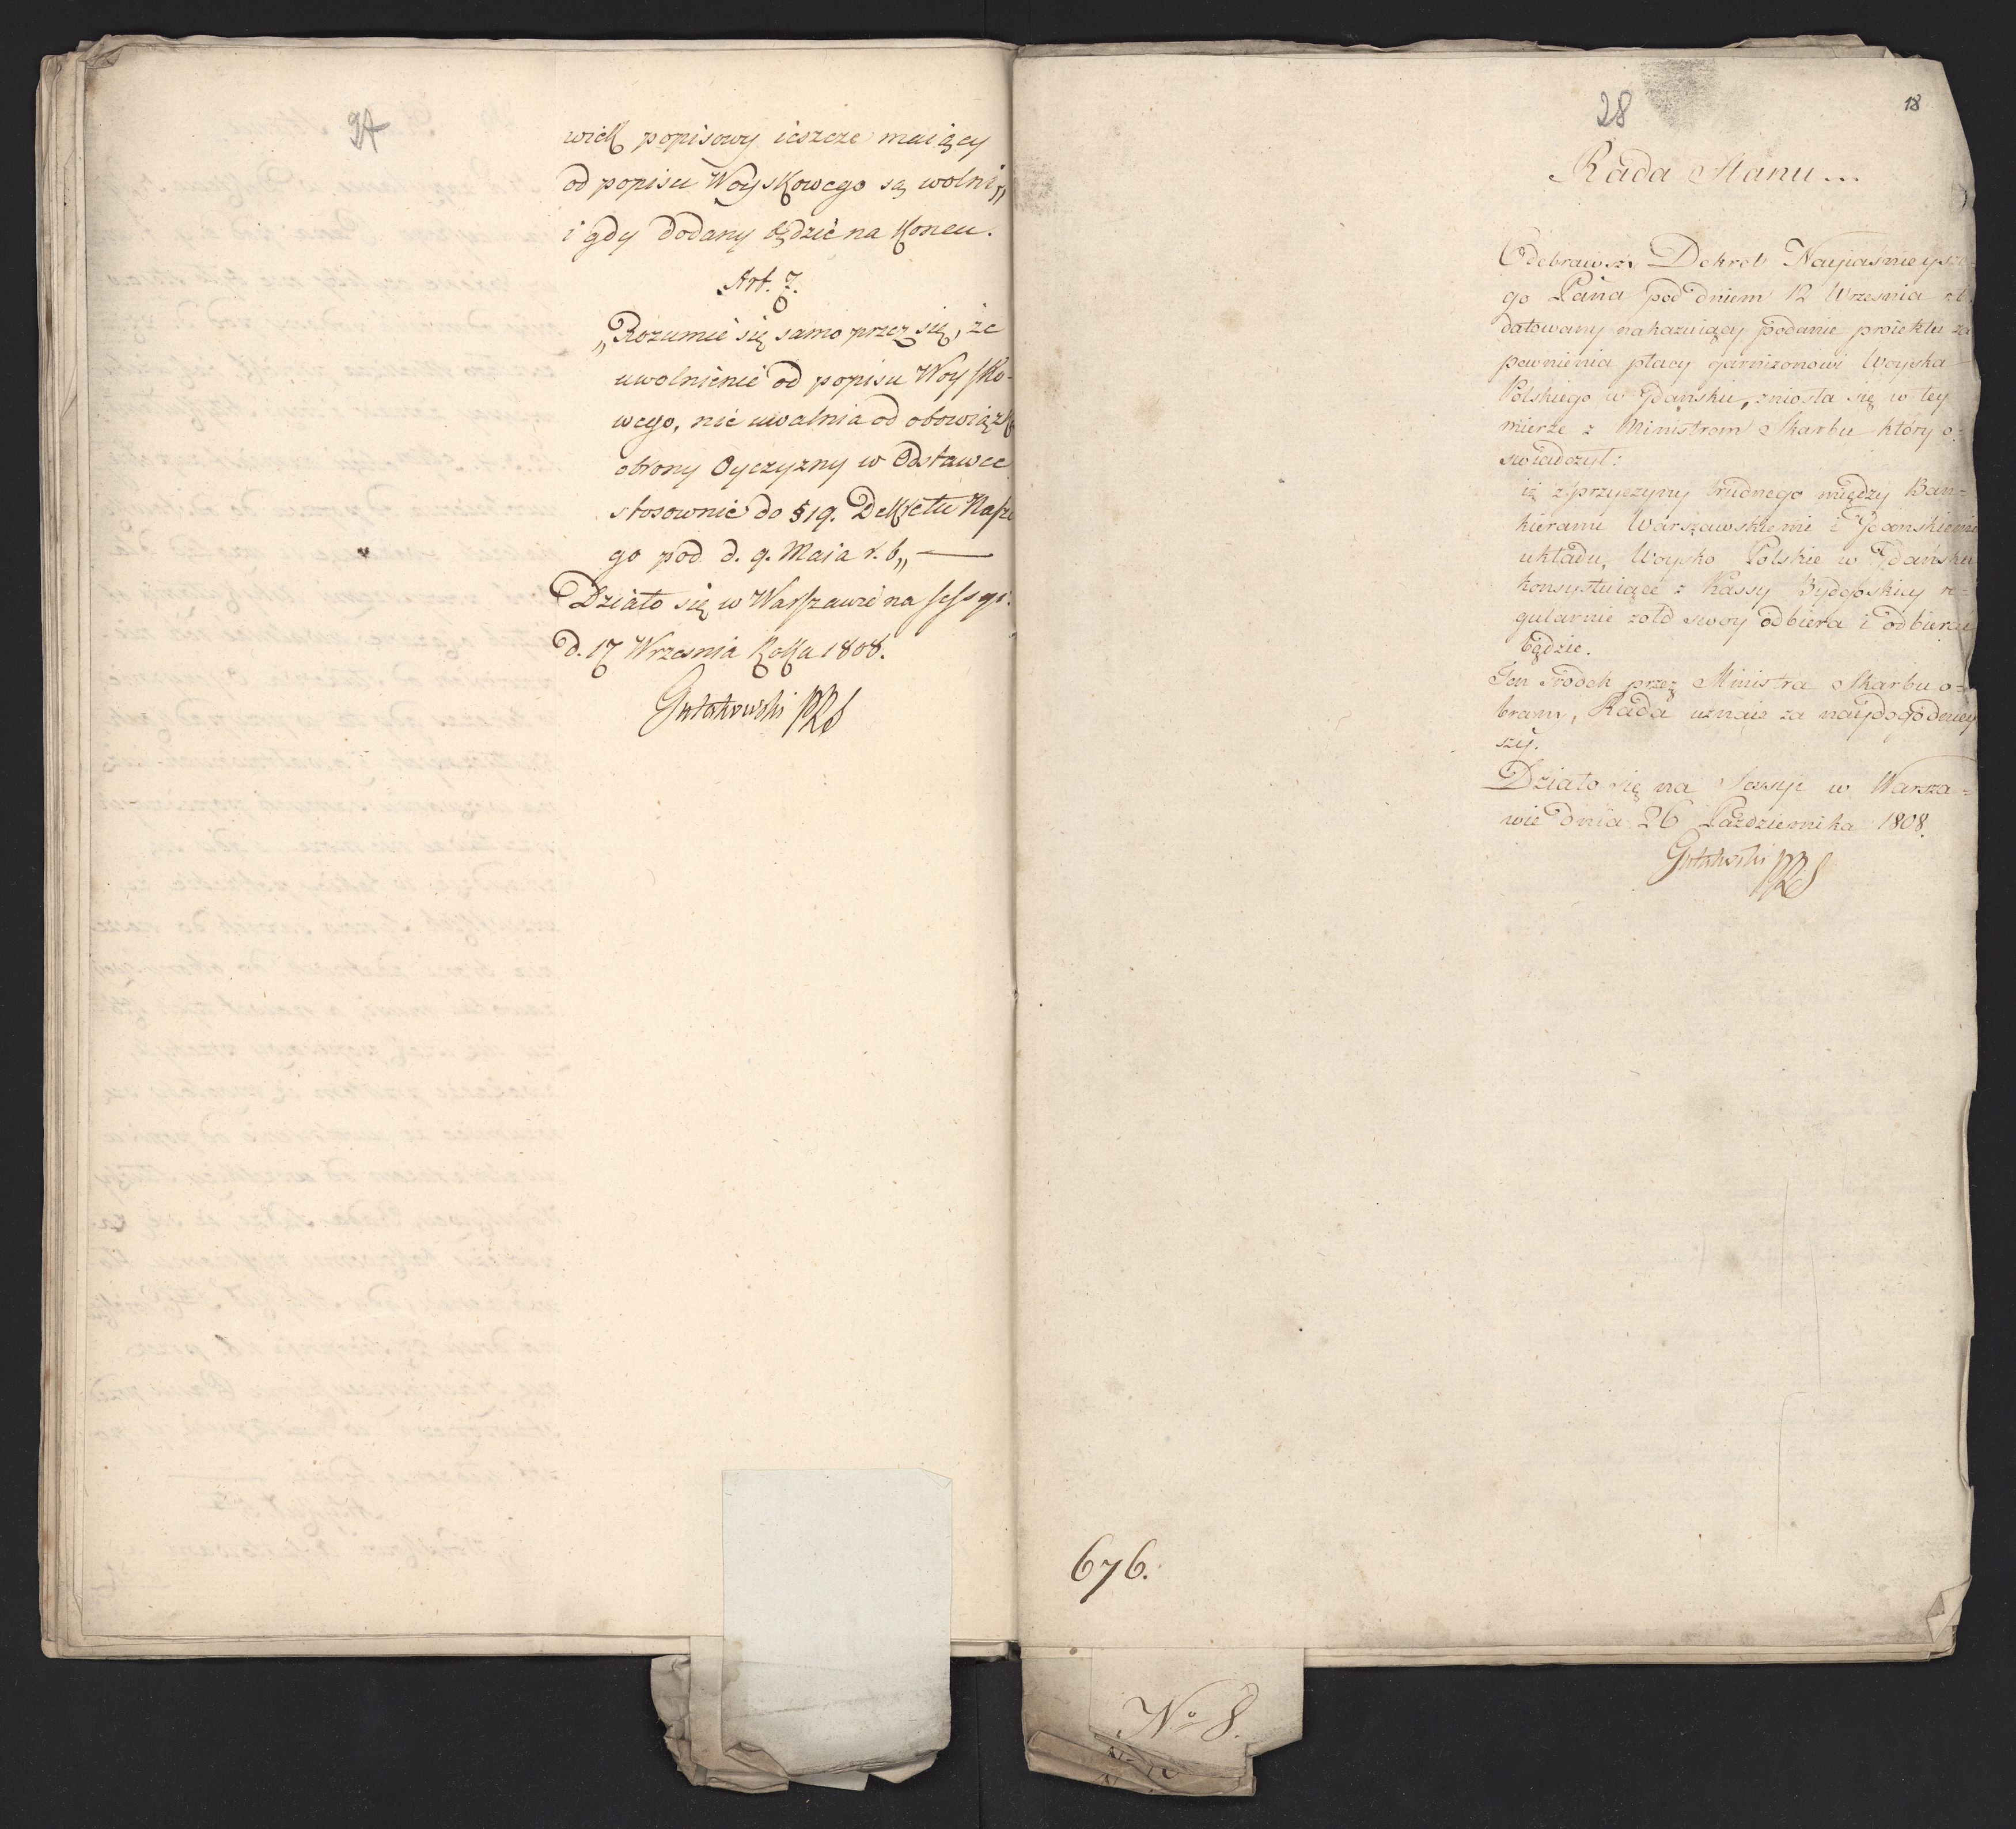 27
wiek popisowy ieszcze maiący
od popisu Woyskowego są wolni„
i gdy dodany będzie na Koncu.
Art. 7.
„Rozumie się samo przez się, że
uwolnienie od popisu Woysko-
wego, nie uwalnia od obowiązk
obrony Oyczyzny w Odstawce
stosownie do § 19. Dekretu Nasze
go pod d. 9. Maia r. b„ —
Działo się w Warszawie na sessyi.
d. 17 Wrzesnia Roku 1808.
Gutakowski PRS
28
18
Rada Stanu...
Odebrawszy Dekret Nayiasnieysze-
go Pana pod dniem 12 Wrzesnia r.b.
datowany nakazuiący podanie proiektu za
pewnienia płacy garnizonowi Woyska
Polskiego w Gdańsku, zniosła się w tey
mierze z Ministrem Skarbu który o-
swiadczył:
iż z przyczyny trudnego między Ban=
kierami Warszawskiemi i Gdanskiemi
układu, Woysko Polskie w Gdańsku
konsystuiące z Kassy Bydgoskiey re=
gularnie żołd swoy odbiera i odbierać
będzie.
Ten srodek przez Ministra Skarbu o=
brany, Rada uznaie za naydogodniey
szy.
Działo się na Sessyi w Warsza=
wie dnia 26 Pazdziernika 1808.
Gutakowski PRS
676.
No 8.